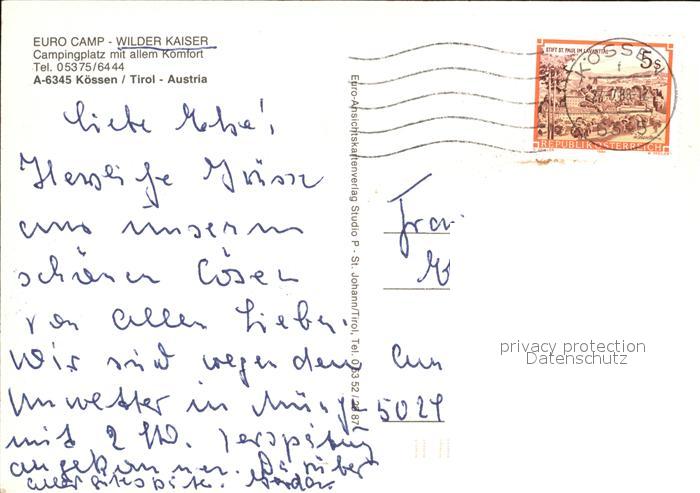 EURO CAMP - WILDER KAISER
Campingplatz mit allem Komfort
Tel. 05375/6444
A-6345 Kössen / Tirol - Austria
Liebe
Herzliche Grüsse
aus unserm
schönen Cösen
von allen Lieben.
Wir sind wegen dem
Unwetter in
mit 2 Std. Verspätung
angekommen. Darüber
alles
Euro-Ansichtskartenverlag Studio P - St. Johann/Tirol, Tel. 0 53 52 / 28 87
STIFT ST. PAUL IM LAVANTTAL
5 S
REPUBLIK ÖSTERREICH
KÖSSEN
Frau
5024
privacy protection
Datenschutz